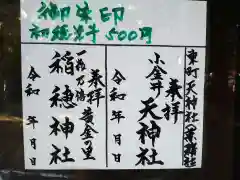 御朱印
初穂料 500円
東町天神社(兼務社)
奉拝
小金井 天神社
令和 年 月 日
奉拝 黄金の里
一粒万倍
稲穂神社
令和 年 月 日